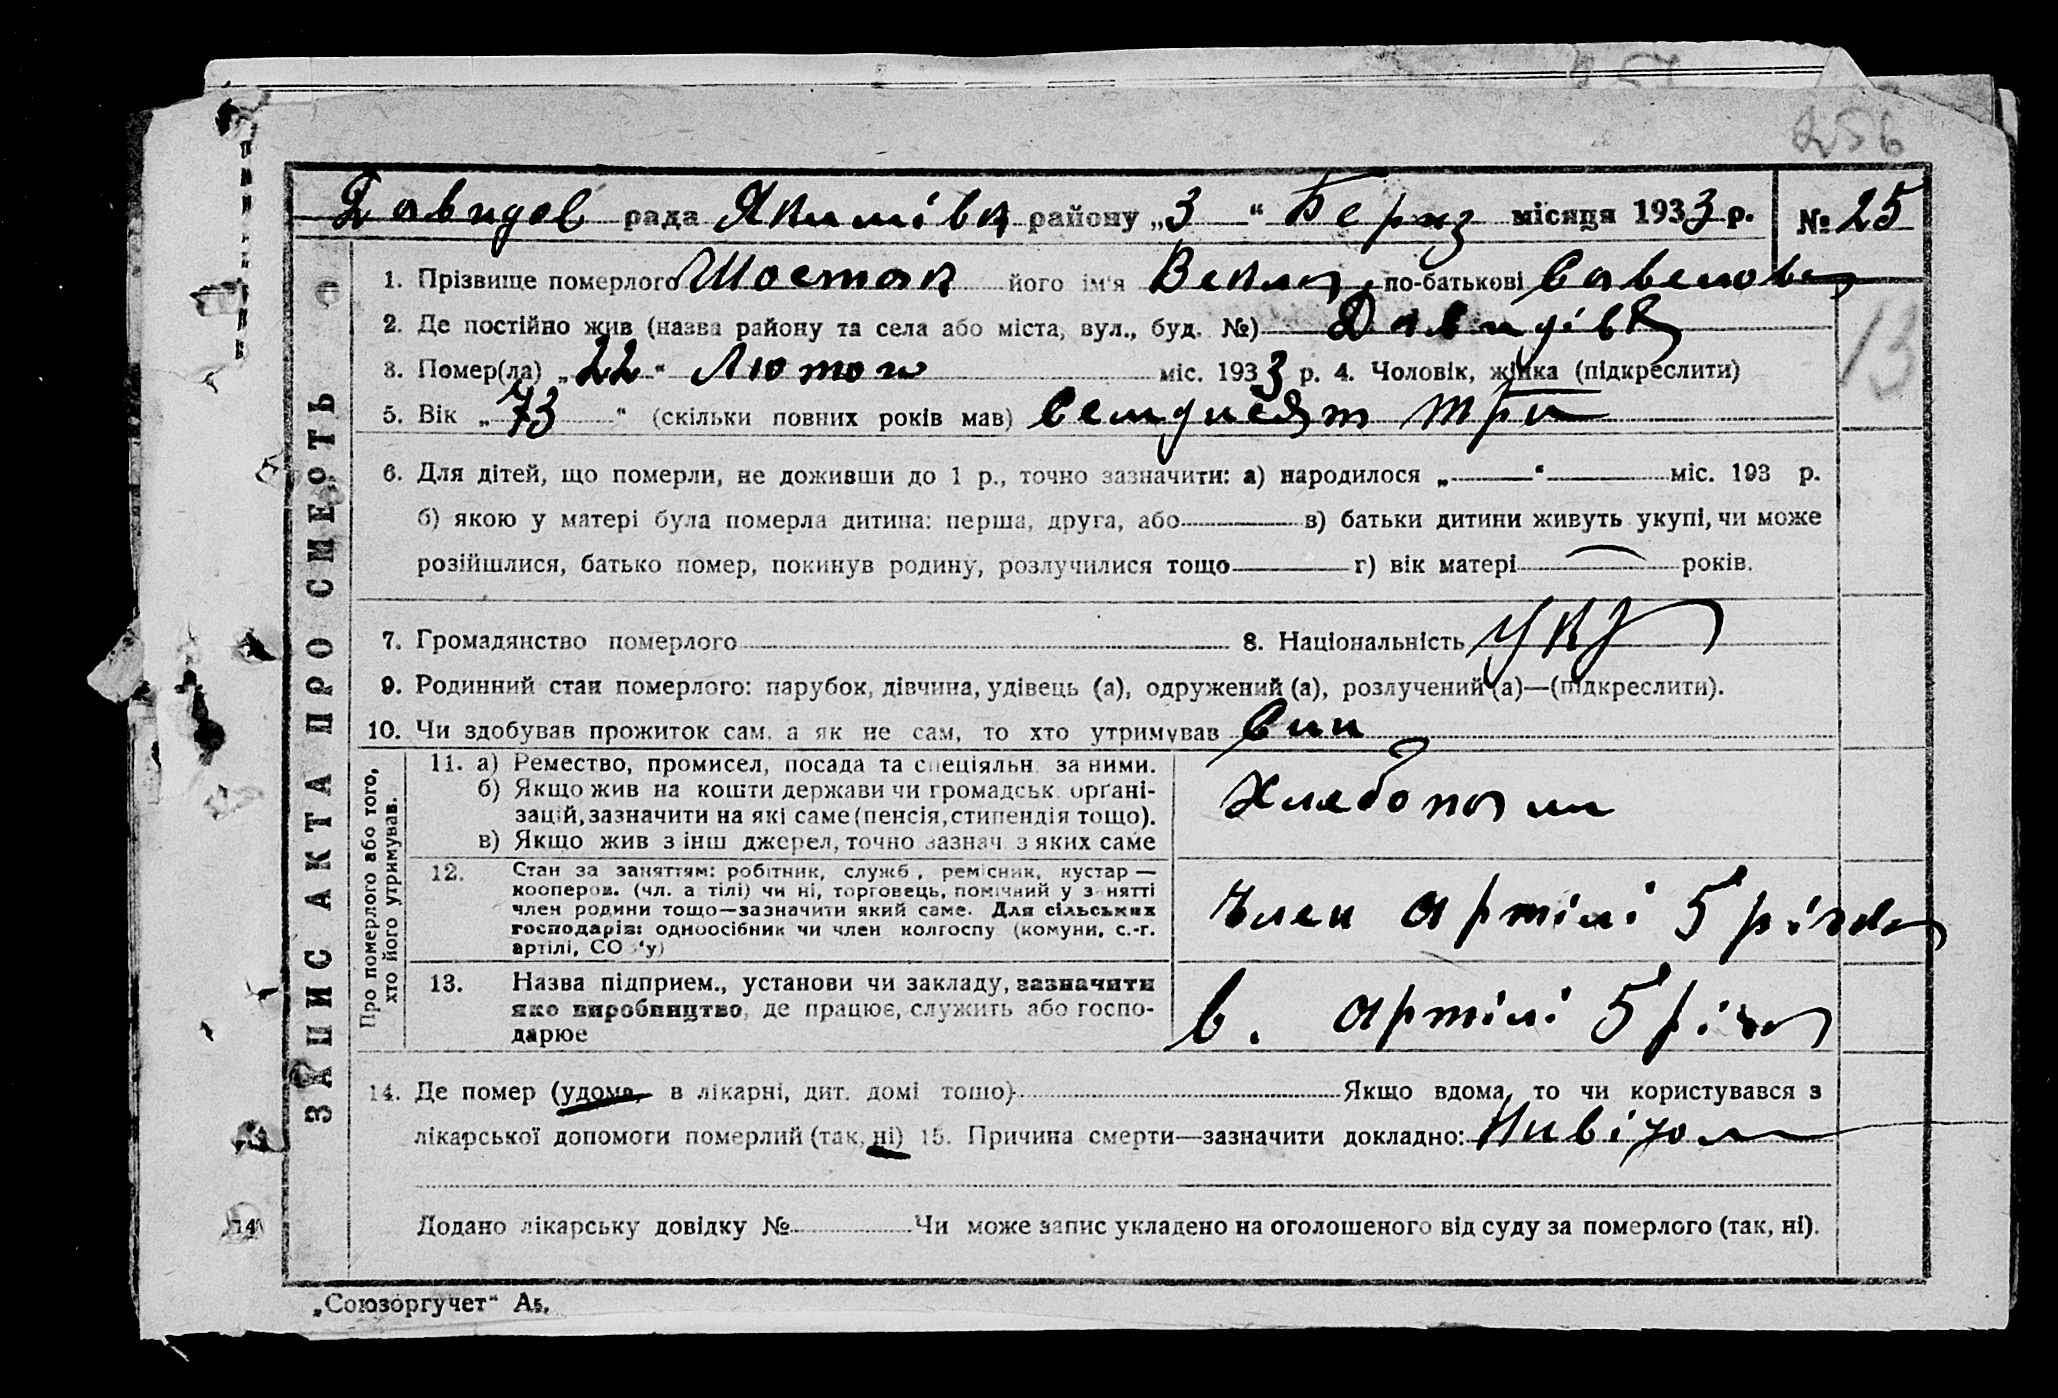 256
Давидов рада Якимівк району „3“ Берез місяця 1933 р. № 25
ЗАПИС АКТА ПРО СМЕРТЬ
1. Прізвище померлого Шостак його ім'я Векла по-батькові Савелова
2. Де постійно жив (назва району та села або міста, вул., буд. №) Давидівк
13
3. Помер(ла) „22“ Лютого міс. 1933 р. 4. Чоловік, жінка (підкреслити)
5. Вік „73“ (скільки повних років мав) Семдисят три
6. Для дітей, що померли, не доживши до 1 р., точно зазначити: а) народилося „—“ міс. 193 р.
б) якою у матері була померла дитина: перша, друга, або — в) батьки дитини живуть укупі, чи може
розійшлися, батько помер, покинув родину, розлучилися тощо — г) вік матері — років.
7. Громадянство померлого 8. Національність Укр
9. Родинний стан померлого: парубок, дівчина, удівець (а), одружений (а), розлучений (а)—(підкреслити).
10. Чи здобував прожиток сам, а як не сам, то хто утримував Син
Про померлого або того,
хто його утримував.
11. а) Ремество, промисел, посада та спеціяльн. за ними.
б) Якщо жив на кошти держави чи громадськ. органі-
зацій, зазначити на які саме (пенсія, стипендія тощо).
в) Якщо жив з інш джерел, точно зазнач. з яких саме
Хлебопаш
12. Стан за заняттям: робітник, служб., ремісник, кустар —
кооперов. (чл. а тілі) чи ні, торговець, помічний у занятті
член родини тощо—зазначити який саме. Для сільських
господарів: одноосібник чи член колгоспу (комуни, с.-г.
артілі, СО у)
Член артілі 5 річка
13. Назва підприєм., установи чи закладу, зазначити
яке виробництво, де працює, служить або госпо-
дарює
в. артілі 5 річк
14. Де помер (удома, в лікарні, дит. домі тощо) Якщо вдома, то чи користувався з
лікарської допомоги померлий (так, ні) 15. Причина смерти—зазначити докладно:
Додано лікарську довідку № Чи може запис укладено на оголошеного від суду за померлого (так, ні).
„Союзоргучет“ А5.